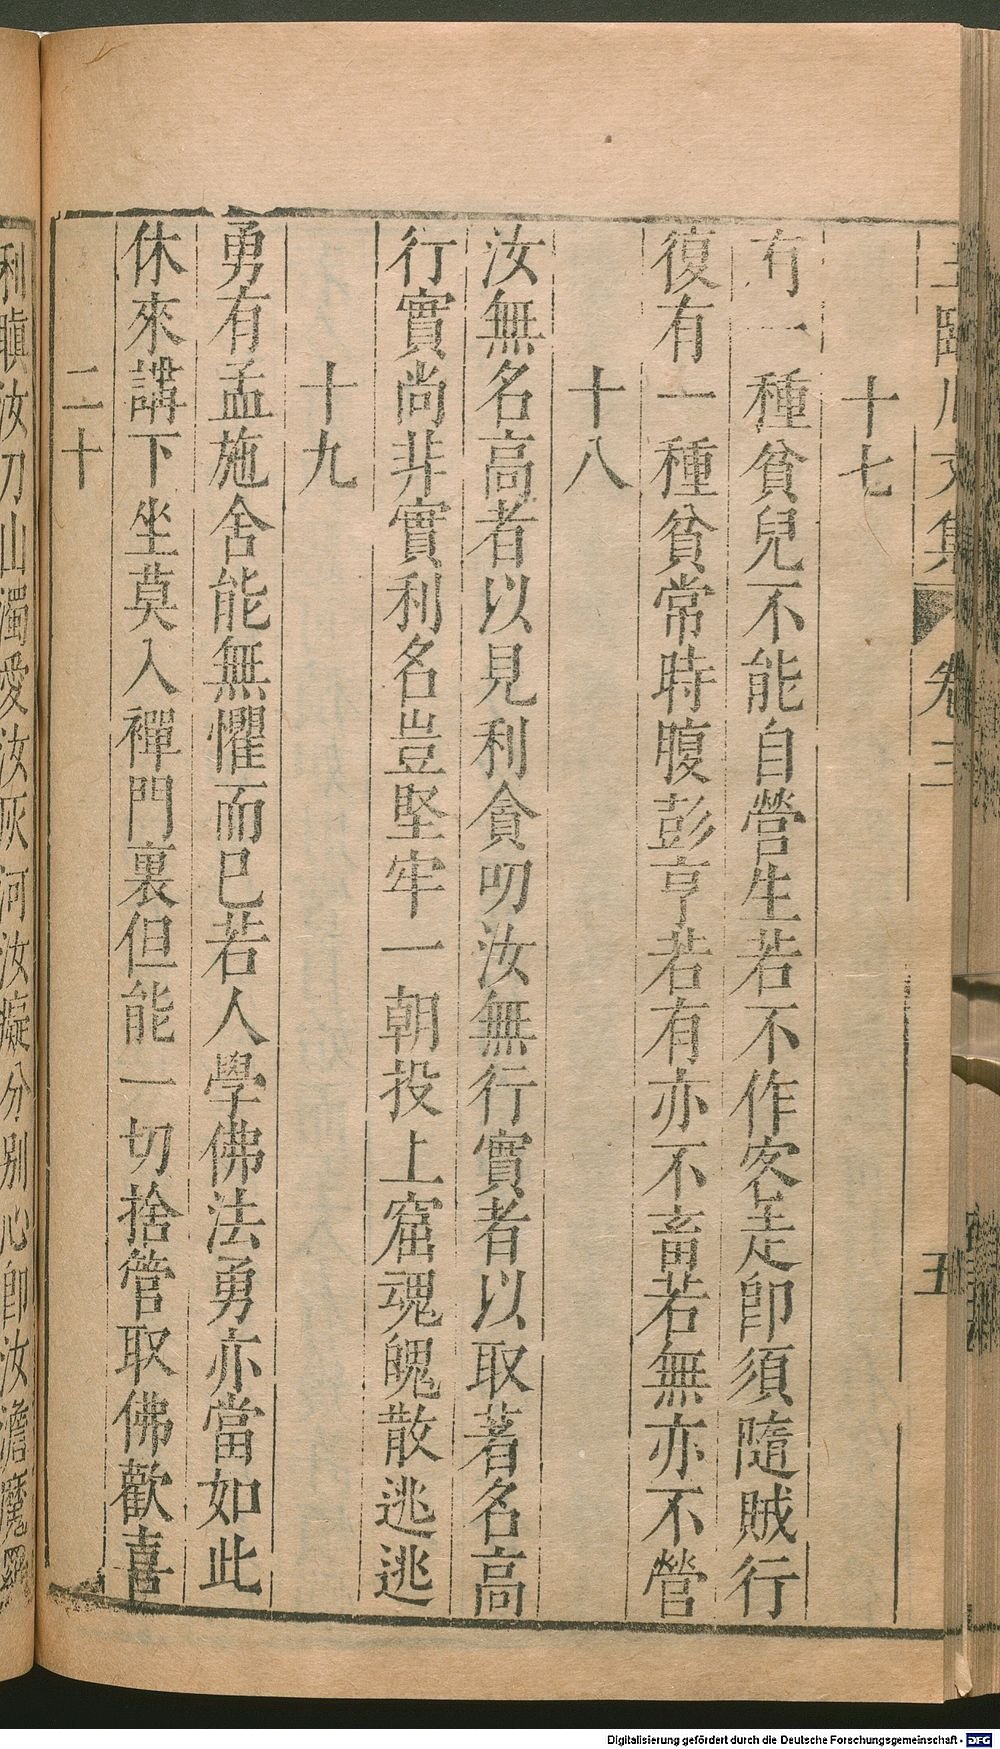 王臨川文集 卷三 五
十七
有一種貧兒不能自營生若不作客走卽須隨賊行
復有一種貧常時腹彭亨若有亦不畜若無亦不營
十八
汝無名高者以見利貪叨汝無行實者以取著名高
行實尚非實利名豈堅牢一朝投上窟魂魄散逃逃
十九
勇有孟施舍能無懼而已若人學佛法勇亦當如此
休來講下坐莫入禪門裏但能一切捨管取佛歡喜
二十
利瞋汝刀山濁愛汝灰河汝癡分别心卽汝澹魔羅
Digitalisierung gefördert durch die Deutsche Forschungsgemeinschaft - DFG